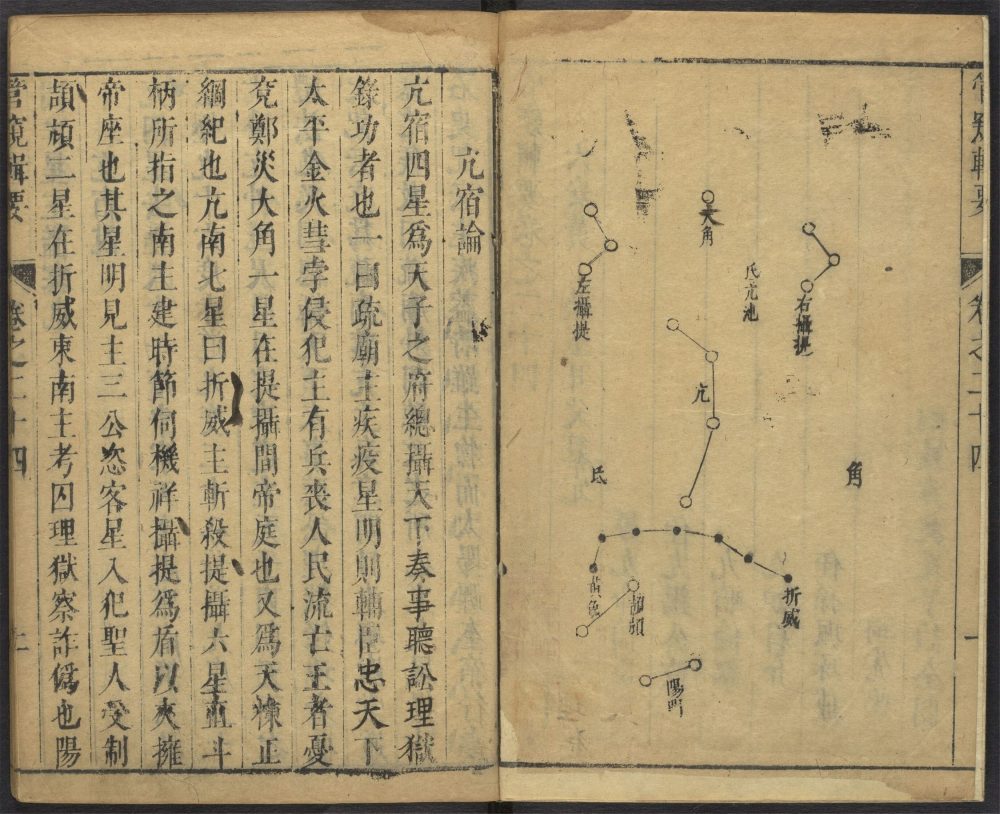 管窺輯要
卷之二十四
大角
左攝提
右攝提
氐亢池
亢
氐
角
折威
頡頏
陽門
一
亢宿論
亢宿四星爲天子之府總攝天下奏事聽訟理獄
錄功者也一曰疏廟主疾疫星明則輔臣忠天下
太平金火彗孛侵犯主有兵喪人民流亡王者憂
兗鄭災大角一星在提攝間帝庭也又爲天棟正
綱紀也亢南七星曰折威主斬殺提攝六星直斗
柄所指之南主建時節伺機祥攝提爲盾以夾擁
帝座也其星明見主三公恣客星入犯聖人受制
頡頏二星在折威東南主考囚理獄察詐僞也陽
管窺輯要
卷之二十四